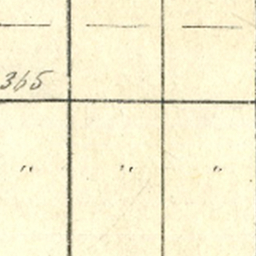 — — —
365
" " "